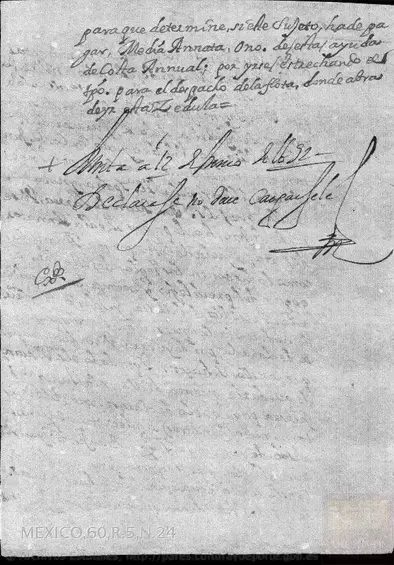 para que determine, si este Sujeto, ha de pa
gar, Media Annata, o no. de esta ayuda
de Costa Annual; por yrse estrechando el
tpo. para el despacho de la flota, donde abra
de yr esta Zedula=
+ a 12 de Junio de 1692
Declarase no deve Cargarsele
MEXICO,60,R.5,N.24